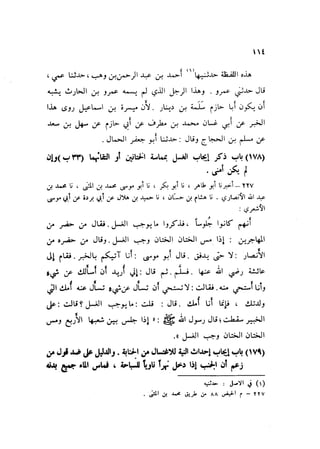 ١١٤
هذه اللفظة حدثنيها(١) أحمد بن عبد الرحمن بن وهب ، حدثنا عمي ،
قال حدثني عمرو . وهذا الرجل الذي لم يسمه عمرو بن الحارث يشبه
أن يكون أبا حازم سلمة بن دينار . لأن ميسرة بن اسماعيل روى هذا
الخبر عن أبي غسان محمد بن مطرف عن أبي حازم عن سهل بن سعد
عن مسلم بن الحجاج وقال : حدثنا أبو جعفر الحمال .
(١٧٨) باب ذكر إيجاب الغسل بمماسة الختانين أو التقائهما (٣٣ ب) وإن
لم يكن أمنى .
٢٢٧ - أخبرنا أبو طاهر ، نا أبو بكر ، نا أبو موسى محمد بن المثنى ، نا محمد بن
عبد الله الأنصاري . نا هشام بن حسان ، نا حميد بن هلال عن أبي بردة عن أبي موسى
الأشعري :
أنهم كانوا جلوساً ، فذكروا ما يوجب الغسل . فقال من حضر من
المهاجرين : إذا مس الختان الختان وجب الغسل . وقال من حضره من
الأنصار : لا حتى يدفق . قال أبو موسى : أنا آتيكم بالخبر . فقام إلى
عائشة رضي الله عنها . فسلّم . ثم قال : إني أريد أن أسألك عن شيء
وأنا أستحي منه . فقالت : لا تستحي أن تسأل عن شيء تسأل عنه أمك التي
ولدتك ، فإنما أنا أمك . قال : قلت : ما يوجب الغسل ؟ قالت : على
الخبير سقطت ؛ قال رسول الله ﷺ : « إذا جلس بين شعبها الأربع ومس
الختان الختان وجب الغسل » .
(١٧٩) باب إيجاب إحداث النية للاغتسال من الجنابة . والدليل على ضد قول من
زعم أن الجنب إذا دخل نهراً ناوياً للسباحة ، فماس الماء جميع بدنه
(١) في الاصل : حدثنيه
٢٢٧ - م الحيض ٨٨ من طريق محمد بن المثنى .